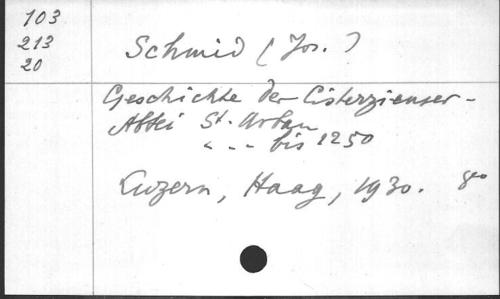 103
213
20
Schmid (Jos.)
Geschichte der Cisterzienser-
Abtei St. Urban
" - - bis 1250
Luzern, Haag, 1930. geo